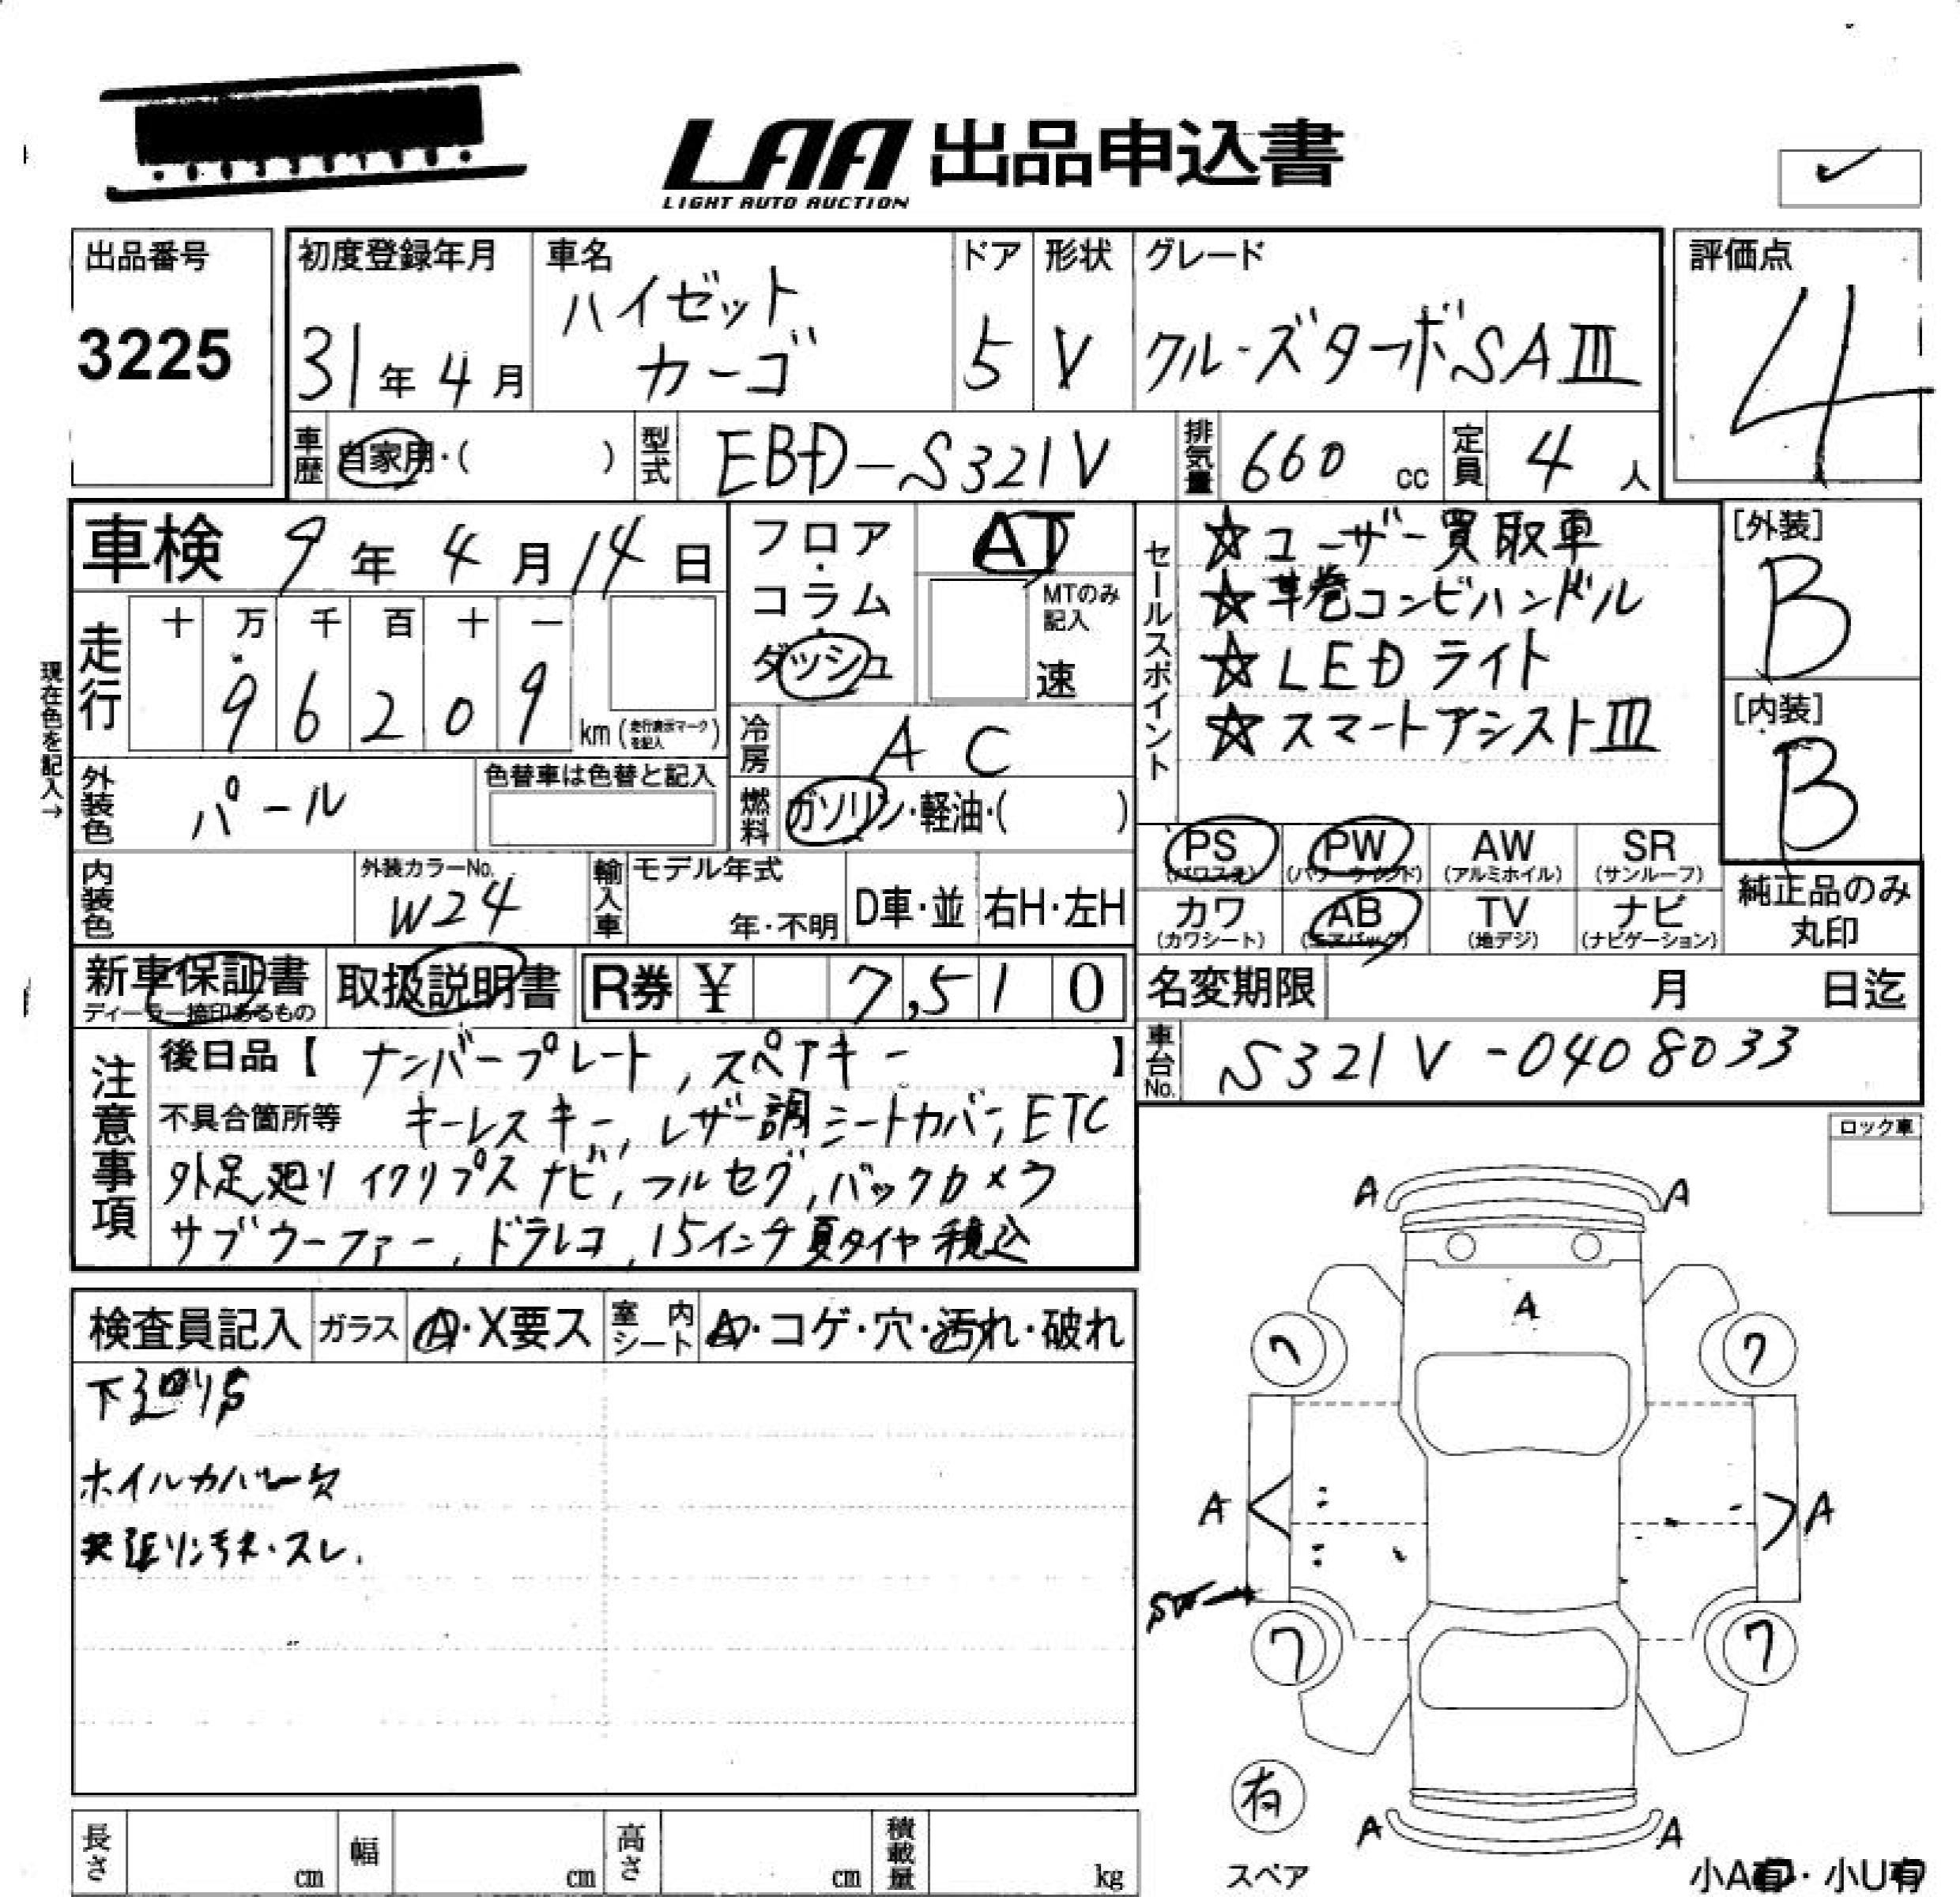 LAA 出品申込書
LIGHT AUTO AUCTION
出品番号
3225
初度登録年月
31年4月
車名
ハイゼット
カーゴ
ドア
5
形状
V
グレード
クルーズターボSAⅢ
評価点
4
車歴
自家用・( )
型式
EBD-S321V
排気量
660 cc
定員
4 人
車検 9年4月14日
フロア・コラム・ダッシュ
AT
MTのみ記入
速
セールスポイント
☆ユーザー買取車
☆革巻コンビハンドル
☆LEDライト
☆スマートアシストⅢ
[外装]
B
[内装]
B
現在色を記入→
走行
十 万 千 百 十 一
9 6 2 0 9 km (走行表示マークを記入)
冷房
AC
外装色
パール
色替車は色替と記入
燃料
ガソリン・軽油・( )
PS (パワステ)
PW (パワーウィンド)
AW (アルミホイル)
SR (サンルーフ)
カワ (カワシート)
AB (エアバッグ)
TV (地デジ)
ナビ (ナビゲーション)
純正品のみ
丸印
内装色
外装カラーNo.
W24
輸入車
モデル年式
年・不明
D車・並
右H・左H
新車保証書
ディーラー捺印あるもの
取扱説明書
R券 ¥ 7,510
名変期限 月 日迄
車台No.
S321V-0408033
注意事項
後日品【 ナンバープレート, スペアキー 】
不具合箇所等 キーレスキー, レザー調シートカバー, ETC
外足廻り イクリプスナビ, フルセグ, バックカメラ
サブウーファー, ドラレコ, 15インチ夏タイヤ積込
ロック車
検査員記入
ガラス
A・X要ス
室内シート
A・コゲ・穴・汚れ・破れ
下廻りS
ホイルカバー欠
天張り汚れ・スレ.
A A
A
7 7
A A
7 7
有
スペア
A A
小A有・小U有
長さ cm
幅 cm
高さ cm
積載量 kg